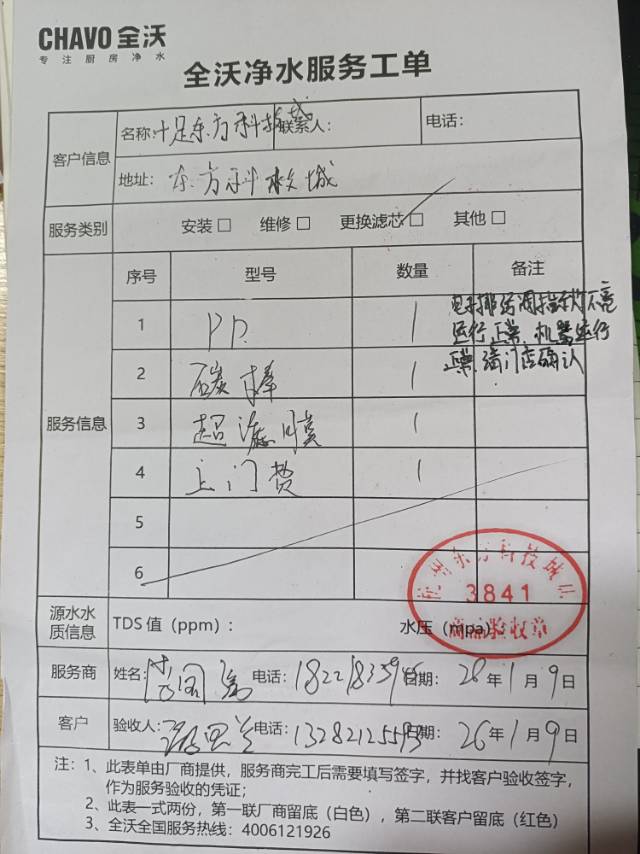 CHAVO 全沃
专注厨房净水
全沃净水服务工单
客户信息
名称：十足东方科技城 联系人： 电话：
地址：东方科技城
服务类别 安装□ 维修□ 更换滤芯□ 其他□
服务信息
序号 型号 数量 备注
1 PP 1 电动排污阀指示灯不亮
运行正常、机器运行
正常、请门店确认
2 碳棒 1
3 超滤膜 1
4 上门费 1
5
6
杭州东方科技城店
3841
商品验收章
源水水质信息 TDS 值（ppm）： 水压（mpa）
服务商 姓名： 电话：182218359 日期：26年1月9日
客户 验收人： 电话：13282125593 日期：26年1月9日
注：1、此表单由厂商提供，服务商完工后需要填写签字，并找客户验收签字，
作为服务验收的凭证；
2、此表一式两份，第一联厂商留底（白色），第二联客户留底（红色）
3、全沃全国服务热线：4006121926